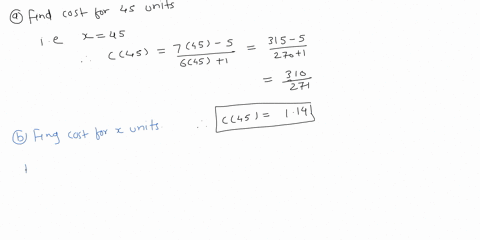 ⓐ Find cost for 45 units
i.e x = 45
∴ C(45) = 7(45) - 5 / 6(45) + 1 = 315 - 5 / 270 + 1
= 310 / 271
∴ C(45) = 1.14
ⓑ Fing cost for x units.